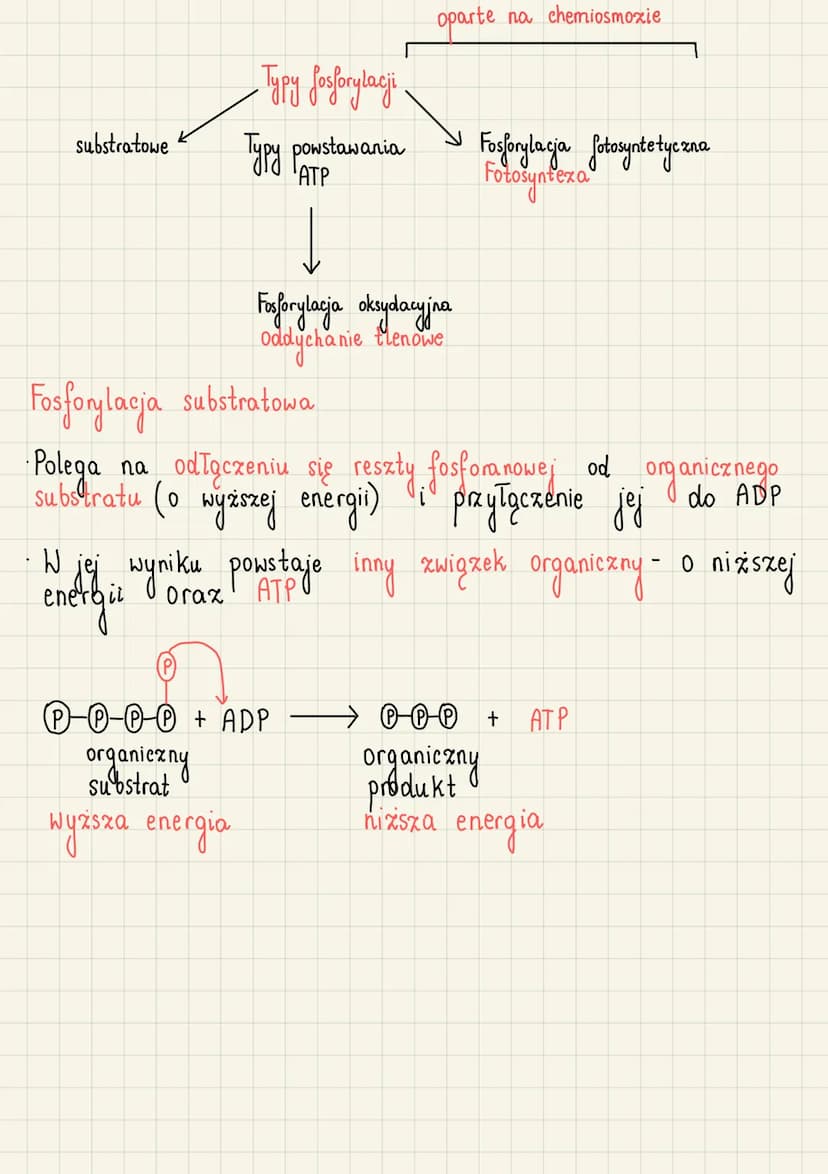 oparte na chemiosmozie
Typy fosforylacji
substratowe
Typy powstawania
ATP
Fosforylacja fotosyntetyczna
Fotosynteza
Fosforylacja oksydacyjna
oddychanie tlenowe
Fosforylacja substratowa
· Polega na odłączeniu się reszty fosforanowej od organicznego
substratu (o wyższej energii) i przyłączenie jej do ADP
· W jej wyniku powstaje inny związek organiczny - o niższej
energii oraz ATP
P
P-P-P-P + ADP → P-P-P + ATP
organiczny
substrat
organiczny
produkt
wyższa energia
niższa energia